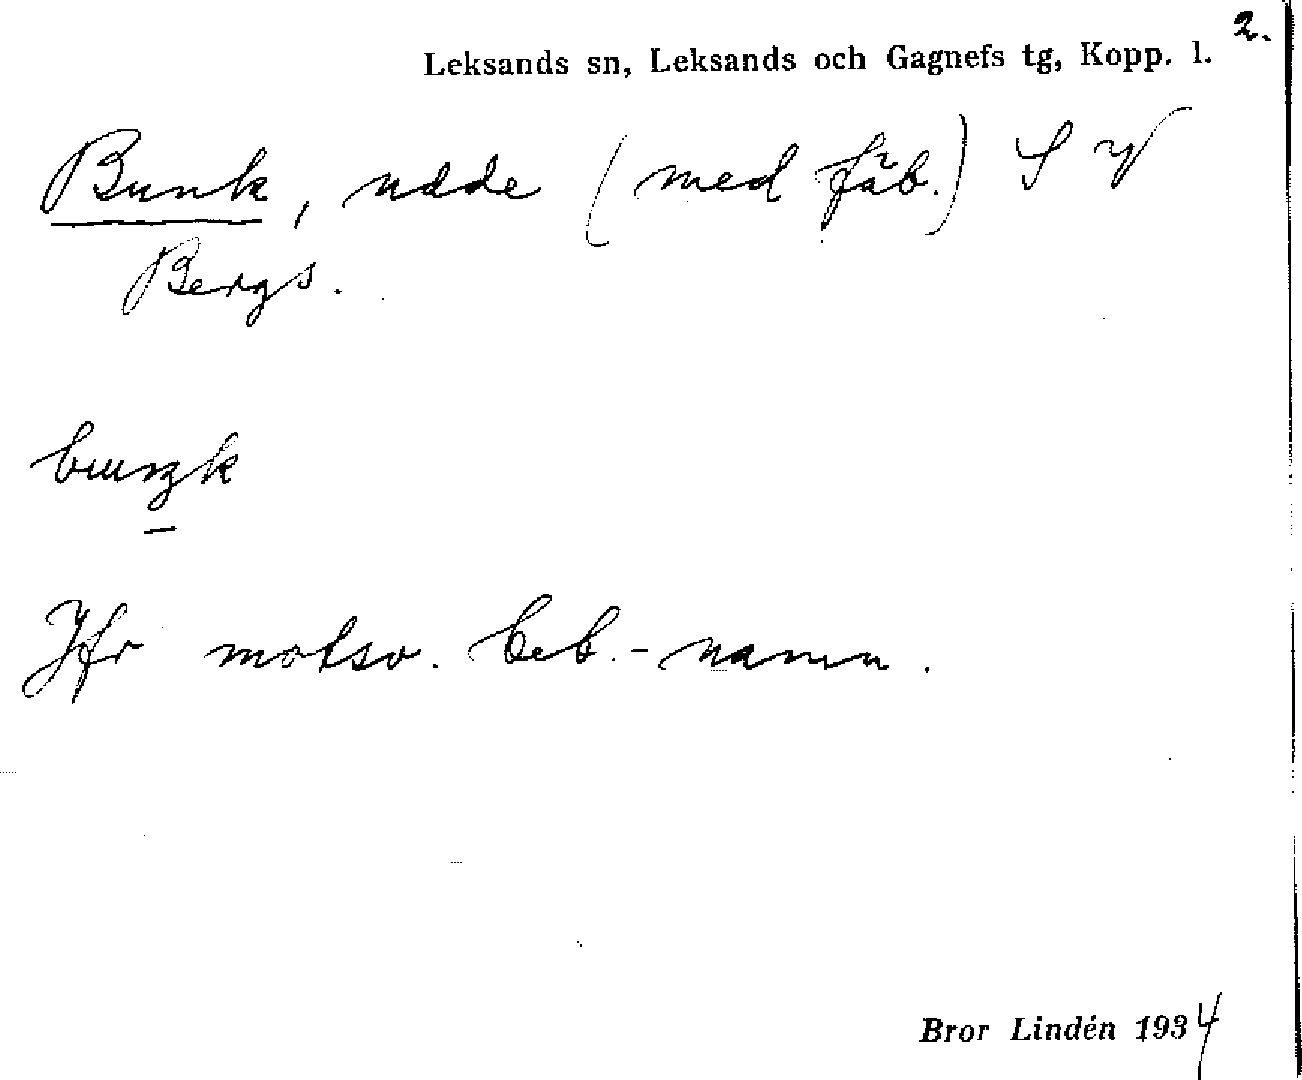 2.
Leksands sn, Leksands och Gagnefs tg, Kopp. l.
Bunk, udde (med fäb.) S V
Bergs.
Jfr motsv. beb.-namn.
Bror Lindén 1934